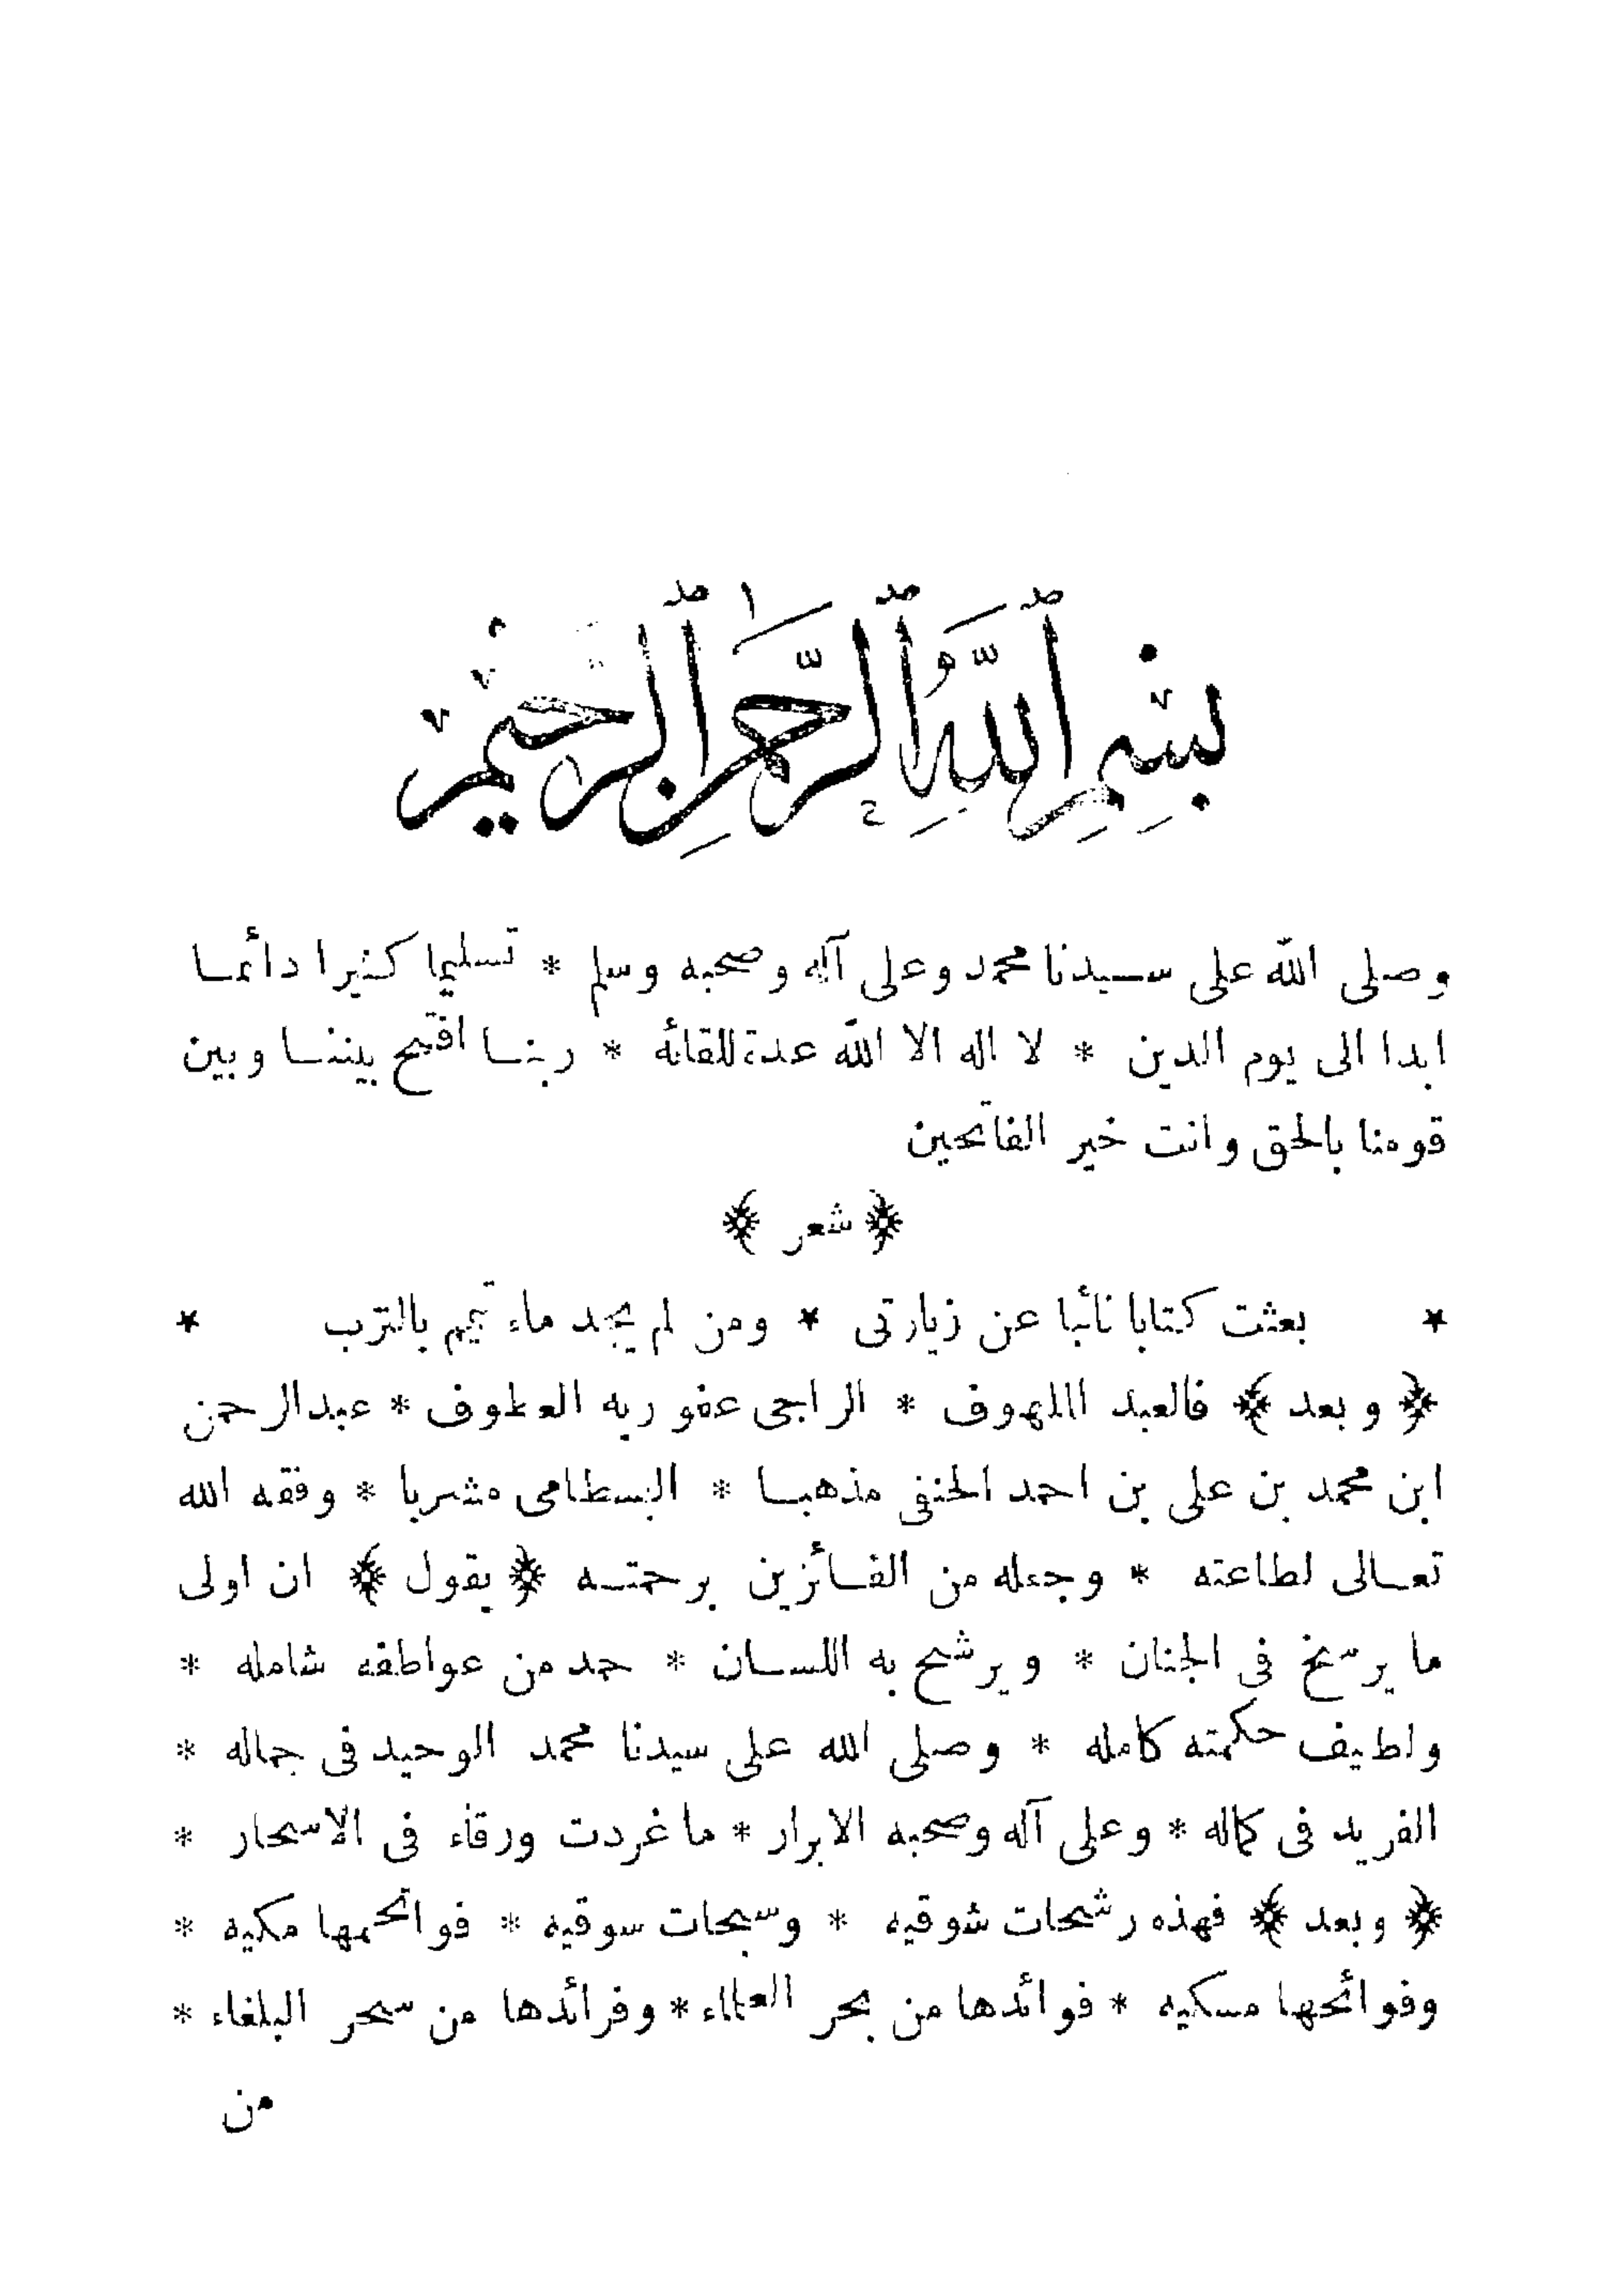 بِسْمِ ٱللَّهِ ٱلرَّحْمَٰنِ ٱلرَّحِيمِ
وصلى الله على سيدنا محمد وعلى آله وصحبه وسلم * تسليما كثيرا دائما
ابدا الى يوم الدين * لا اله الا الله عدة للقائه * ربنا افتح بيننا وبين
قومنا بالحق وانت خير الفاتحين
﴿ شعر ﴾
* بعثت كتابا نائبا عن زيارتى * ومن لم يجد ماء تيمم بالترب *
﴿ وبعد ﴾ فالعبد الملهوف * الراجى عفو ربه العطوف * عبدالرحمن
ابن محمد بن على بن احمد الحنفى مذهبا * البسطامى مشربا * وفقه الله
تعالى لطاعته * وجعله من الفائزين برحمته ﴿ يقول ﴾ ان اولى
ما يرسخ فى الجنان * ويرشح به اللسان * حمد من عواطفه شامله *
ولطيف حكمته كامله * وصلى الله على سيدنا محمد الوحيد فى جماله *
الفريد فى كماله * وعلى آله وصحبه الابرار * ما غردت ورقاء فى الاسحار *
﴿ وبعد ﴾ فهذه رشحات شوقيه * وسبحات سوقيه * فواتحمها مكيه *
وفوائحها مسكيه * فوائدها من بحر العلماء * وفرائدها من سحر البلغاء *
من